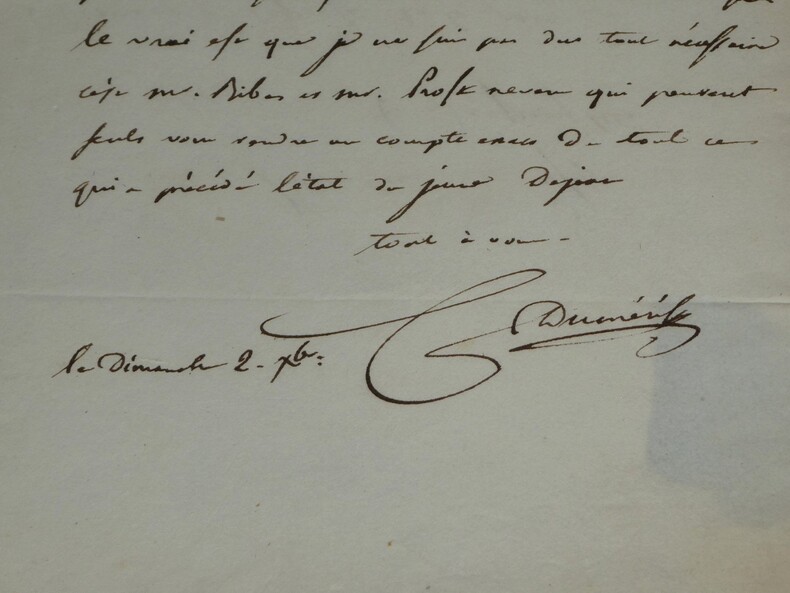 le vrai est que je ne suis pas du tout nécessaire
c'est mr. Ribes et mr. Prost neveu qui peuvent
seuls vous rendre un compte exact de tout ce
qui a précédé l'état du jeune Dejean
tout à vous
C Duméril
le Dimanche 2. Xbre: